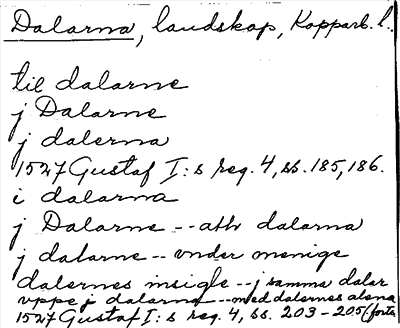 Dalarna, landskap, Kopparb. l.
til dalarne
j Dalarne
j dalerna
1527 Gustaf I:s reg. 4, ss. 185, 186.
i dalarna
j Dalarne -- ath dalarna
j dalarne -- vnder menige
dalernes insigle -- j samma dalar
vppe j dalarna -- med dalernes
1527 Gustaf I:s reg. 4, ss. 203-205 (forts.